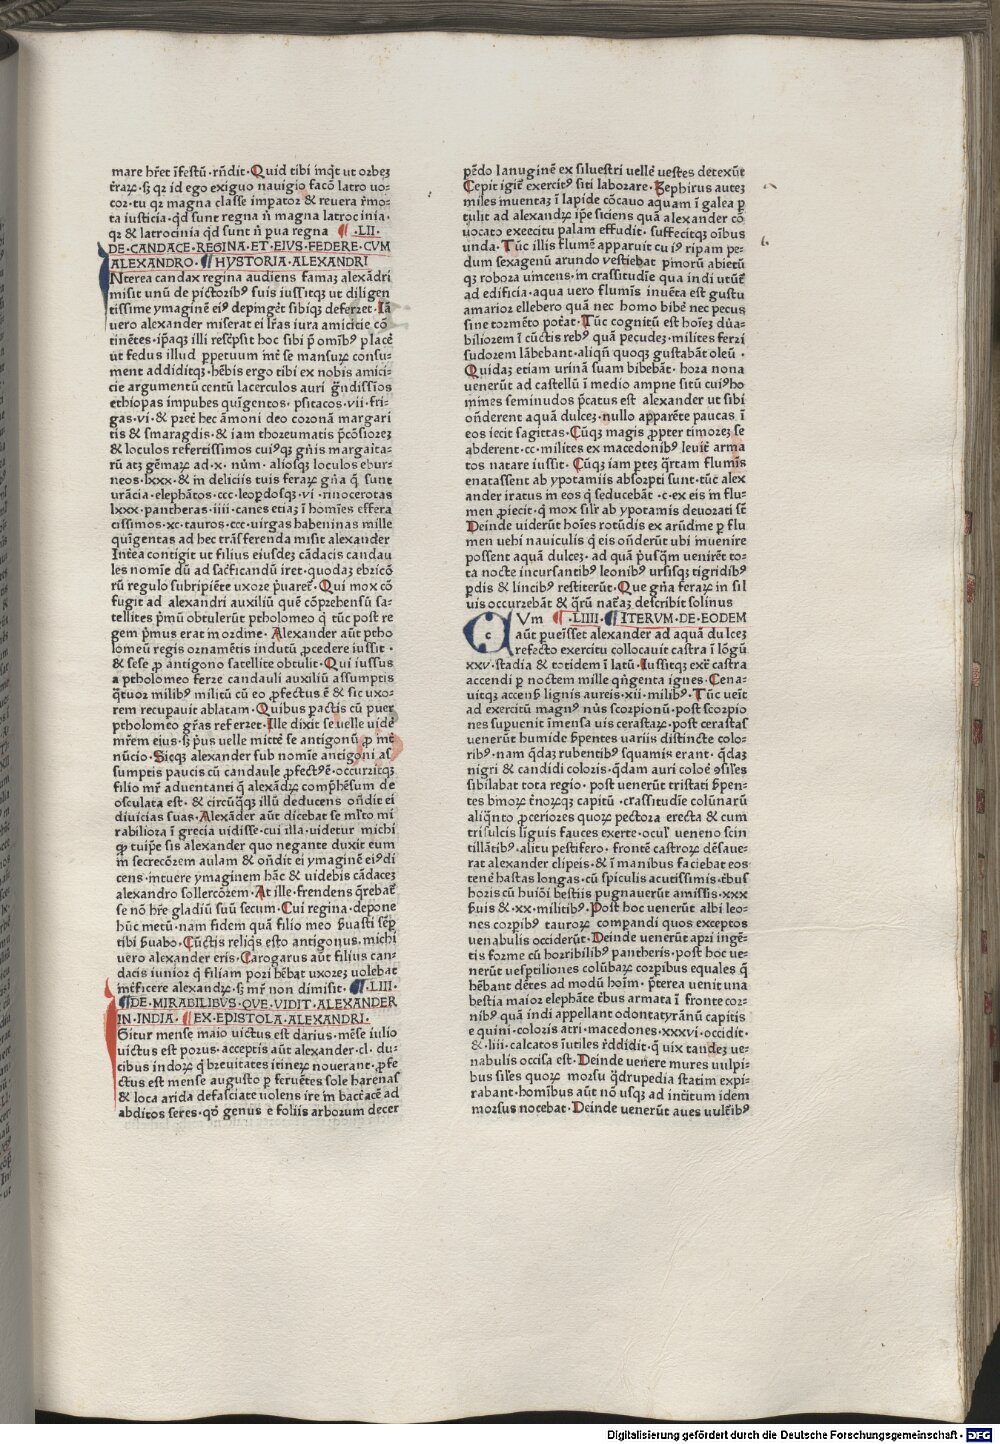 mare hr̄et īfestū·rn̄dit·Quid tibi inq̄t ut orbeꝫ
t̄raꝝ·sꝫ qꝛ id ego exiguo nauigio facō latro uo-
coꝛ·tu qꝛ magna classe impatoꝛ & reuera r̄mo-
ta iusticia·qd̄ sunt regna n̄ magna latrocinia·
qꝛ & latrocinia qd̄ sunt n̄ p̄ua regna ¶·LII·
DE·CANDACE·REGINA·ET·EIVS·FEDERE·CVM
ALEXANDRO·¶HYSTORIA·ALEXANDRI
Nterea candax regina audiens famaꝫ alexādri
misit unū de pictoribꝰ suis iussitqꝫ ut diligen
tissime ymaginē eiꝰ depinget̄ sibiqꝫ deferꝛet·Iā
uero alexander miserat ei lr̄as iura amicicie cō
tinētes·ip̄aqꝫ illi resc̄psit hoc sibi p̄ omībꝰ placē
ut fedus illud ꝑpetuum int̄ se mansuꝝ consu-
ment addiditqꝫ·hēbis ergo tibi ex nobis amici-
cie argumentū centū lacerculos auri gn̄dissīos
ethiopas impubes quīgentos·psitacos·vii·fri-
gas·vi·& pret̄ hec āmoni deo coꝛonā margari
tis & smaragdis·& iam thoꝛeumatis p̄cōsioꝛeꝫ
& loculos refertissimos cuiꝰqꝫ gn̄is margaita-
rū atꝫ gēmaꝝ ad·x·nūm·aliosqꝫ loculos ebur-
neos·lxxx·& in deliciis tuis feraꝝ gn̄a q̄ sunt
urācia·elephātos·ccc·leopdosqꝫ·vi·rinocerotas
lxxx·pantheras·iiii·canes etiaꝫ ī homīes effera
cissimos·xc·tauros·ccc·uirgas habeninas mille
quīgentas ad hec trāsferenda misit alexander
Intea contigit ut filius eiusdeꝫ cādacis candau
les nomīe dū ad sac̄ficandū iret·quodaꝫ ebꝛicō
rū regulo subripiēte uxoꝛe p̄uaret̄·Qui mox cō
fugit ad alexandri auxiliū quē cōprehensū sa-
tellites p̄mū obtulerūt ptholomeo q̄ tūc post re
gem p̄mus erat in oꝛdine·Alexander aūt ptho
lomeū regis oꝛnamētis indutū ꝓcedere iussit·
& sese ꝓ antigono satellite obtulit·Qui iussus
a ptholomeo ferꝛe candauli auxiliū assumptis
q̄tuoꝛ milibꝰ militū cū eo ꝓfectus ē & sic uxo-
rem recupauit ablatam·Quibus pactis cū puer
ptholomeo gr̄as referꝛet·Ille dixit se uelle uide
mr̄em eius·sꝫ p̄us uelle mitt̄e se antigonū ꝓ int̄
nūcio·Sicqꝫ alexander sub nomīe antigoni as
sumptis paucis cū candaule ꝓfectꝰē·occurꝛitqꝫ
filio mr̄ aduentanti q̄ alexādꝝ comp̄hēsum de
osculata est·& circūqꝫ illū deducens on̄dit ei
diuicias suas·Alexāder aūt dicebat se ml̄to mi
rabilioꝛa ī grecia uidisse·cui illa·uidetur michi
ꝙ tuip̄e sis alexander quo negante duxit eum
in secrecōꝛem aulam & on̄dit ei ymaginē eiꝰdi
cens·intuere ymaginem hāc & uidebis cādaceꝫ
alexandro sollercōꝛem·At ille·frendens q̄rebat̄
se nō hr̄e gladiū suū secum·Cui regina·depone
hūc metū·nam fidem quā filio meo ẜuasti sēꝑ
tibi ẜuabo·Cūctis reliq̄s esto antigonus·michi
uero alexander eris·Carogarus aūt filius can-
dacis iunioꝛ q̄ filiam poꝛi hēbat uxoꝛeꝫ uolebat
int̄ficere alexandꝝ·sꝫ mr̄ non dimisit·¶·LIII·
¶DE·MIRABILIBVS·QVE·VIDIT·ALEXANDER
IN·INDIA·¶EX·EPISTOLA·ALEXANDRI·
Gitur mense maio uictus est darius·mēse iulio
uictus est poꝛus·acceptis aūt alexander·cl·du-
cibus indoꝝ q̄ bꝛeuitates itineꝝ nouerant·ꝓfe
ctus est mense augusto ꝑ feruētes sole harenas
& loca arida defasciate uolens ire in bactr̄acē ad
abditos seres·qō genus e foliis arboꝛum decer
pēdo lanuginē ex siluestri uelle᷑ uestes detexūt
Cepit igit᷑ exercitꝰ siti laboꝛare·Zephirus auteꝫ
miles inuentaꝫ ī lapide cōcauo aquam ī galea ꝑ
tulit ad alexandꝝ ip̄e siciens quā alexander cō
uocato exercitu palam effudit·suffecitqꝫ oībus
unda·Tūc illis flumē apparuit cuiꝰ ripam pe-
dum sexagenū arundo vestiebat p̄inoꝛū abietū
qꝫ roboꝛa uincens·in crassitudīe qua indi utūt᷑
ad edificia·aqua uero flumīs inuēta est gustu
amarioꝛ ellebero quā nec homo bibē nec pecus
sine toꝛmēto poīat·Tūc cognitū est hoīeꝫ dūa-
biliorem ī cūctis rebꝰ quā pecudeꝫ·milites ferꝛi
sudoꝛem lābebant·aliqn̄ quoqꝫ gustabāt oleū·
Quidaꝫ etiam urinā suam bibebāt·hoꝛa nona
uenerūt ad castellū ī medio ampne sitū cuiꝰho
mines seminudos p̄catus est alexander ut sibi
on̄derent aquā dulceꝫ·nullo apparēte paucas ī
eos iecit sagittas·Cūqꝫ magis ꝓpter timoꝛeꝫ se
abderent·cc·milites ex macedonibꝰ leuit᷑ arma
tos natare iussit·Cūqꝫ iam p̄teꝫ q̄rtam flumīs
enatassent ab ypotamiis absoꝛpti sunt·tūc alex
ander iratus in eos q̄ seducebāt·c·ex eis in flu-
men ꝓiecit·q̄ mox sil᷑r ab ypotamis deuoꝛati sē
Deinde uiderūt hoīes rotūdis ex arūdīne ꝑ flu
men uehi nauiculis q̄ eis on̄derūt ubi inuenire
possent aquā dulceꝫ·ad quā p̄usq̄m uenirēt to-
ta nocte incursantibꝰ leonibꝰ ursisqꝫ tigridibꝰ
pdis & lincibꝰ restiterūt·Que gn̄a feraꝝ in sil
uis occurꝛebāt & q̄rū nat᷑aꝫ describit solinus
CVm ¶·LIIII·¶ITERVM·DE·EODEM
aūt pueīsset alexander ad aquā dulceꝫ
refecto exercitu collocauit castra ī lōgū
xxv·stadia & totidem ī latū·Iussitqꝫ exr̄ castra
accendi ꝑ noctem mille qn̄genta ignes·Cena-
uitqꝫ accensꝭ lignis aureis·xii·milibꝰ·Tūc ueīt
ad exercitū magnꝰ nūs scoꝛpionū·post scoꝛpio
nes supuenit īmensa uis cerastaꝝ·post cerastas
uenerūt humide ẜpentes uariis distincte coloꝛ-
ribꝰ·nam q̄daꝫ rubentibꝰ squamis erant·q̄daꝫ
nigri & candidi coloꝛis·q̄dam auri coloē ꝯsil᷑es
sibilabat tota regio·post uenerūt tristati ẜpen-
tes binoꝝ t̄noꝝqꝫ capitū·crassitudīe colūnarū
aliq̄nto ꝓcerioꝛes quoꝝ pectoꝛa erecta & cum
trisulcis linguis fauces exerte·ocul᷑ ueneno scin
tillātibꝰ·alitu pestifero·frontē castroꝝ dēsaue-
rat alexander clipeis·& ī manibus faciebat eos
tenē hastas longas·cū spiculis acutissimis·t̄bus
hoꝛis cū huiōi bestiis pugnauerūt amissis·xxx
ẜuis &·xx·militibꝰ·Post hoc uenerūt albi leo-
nes coꝛpibꝰ tauroꝝ compandi quos exceptos
uenabulis occiderūt·Deinde uenerūt apꝛi ingē-
tis foꝛme cū hoꝛribilibꝰ pantheris·post hoc ue-
nerūt uesptiliones colūbaꝝ coꝛpibus equales q̄
hēbant dētes ad modū hoīm·p̄terea uenit una
bestia maioꝛ elephāte t̄bus armata ī fronte coꝛ-
nibꝰ quā indi appellant odontatyrānū capitis
e quini·coloꝛis atri·macedones·xxxvi·occidit·
&·liii·calcatos īutiles r̄ddidit·q̄ uix tandeꝫ ue-
nabulis occisa est·Deinde uenere mures uulpi-
bus sil᷑es quoꝝ moꝛsu q̄drupedia statim expi-
rabant·homībus aūt nō usqꝫ ad int̄itum idem
moꝛsus nocebat·Deinde uenerūt aues uult᷑ibꝰ
Digitalisierung gefördert durch die Deutsche Forschungsgemeinschaft - DFG